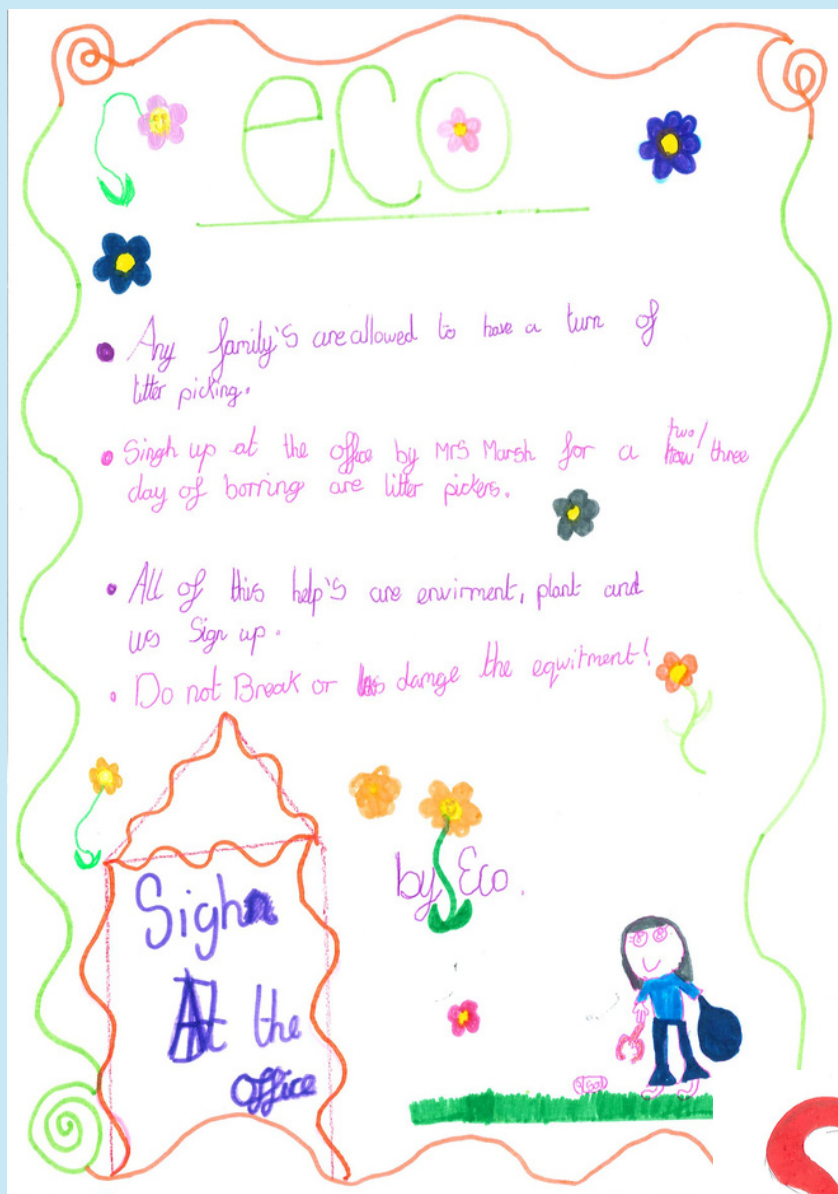 eco
Any family's are allowed to have a turn of
litter picking.
Singh up at the office by Mrs Marsh for a two/three
day of borring are litter pickers.
All of this help's are envirment, plant and
us Sign up.
Do not Break or damge the eqwitment!
by Eco.
Sighn
At the
office